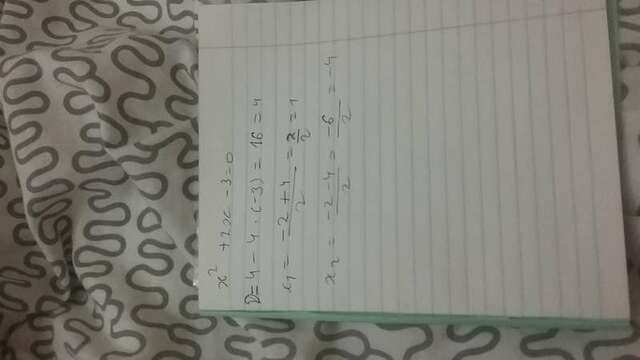 x² + 2x - 3 = 0
D = 4 - 4 · (-3) = 16 = 4
x₁ = (-2 + 4)/2 = 2/2 = 1
x₂ = (-2 - 4)/2 = -6/2 = -4